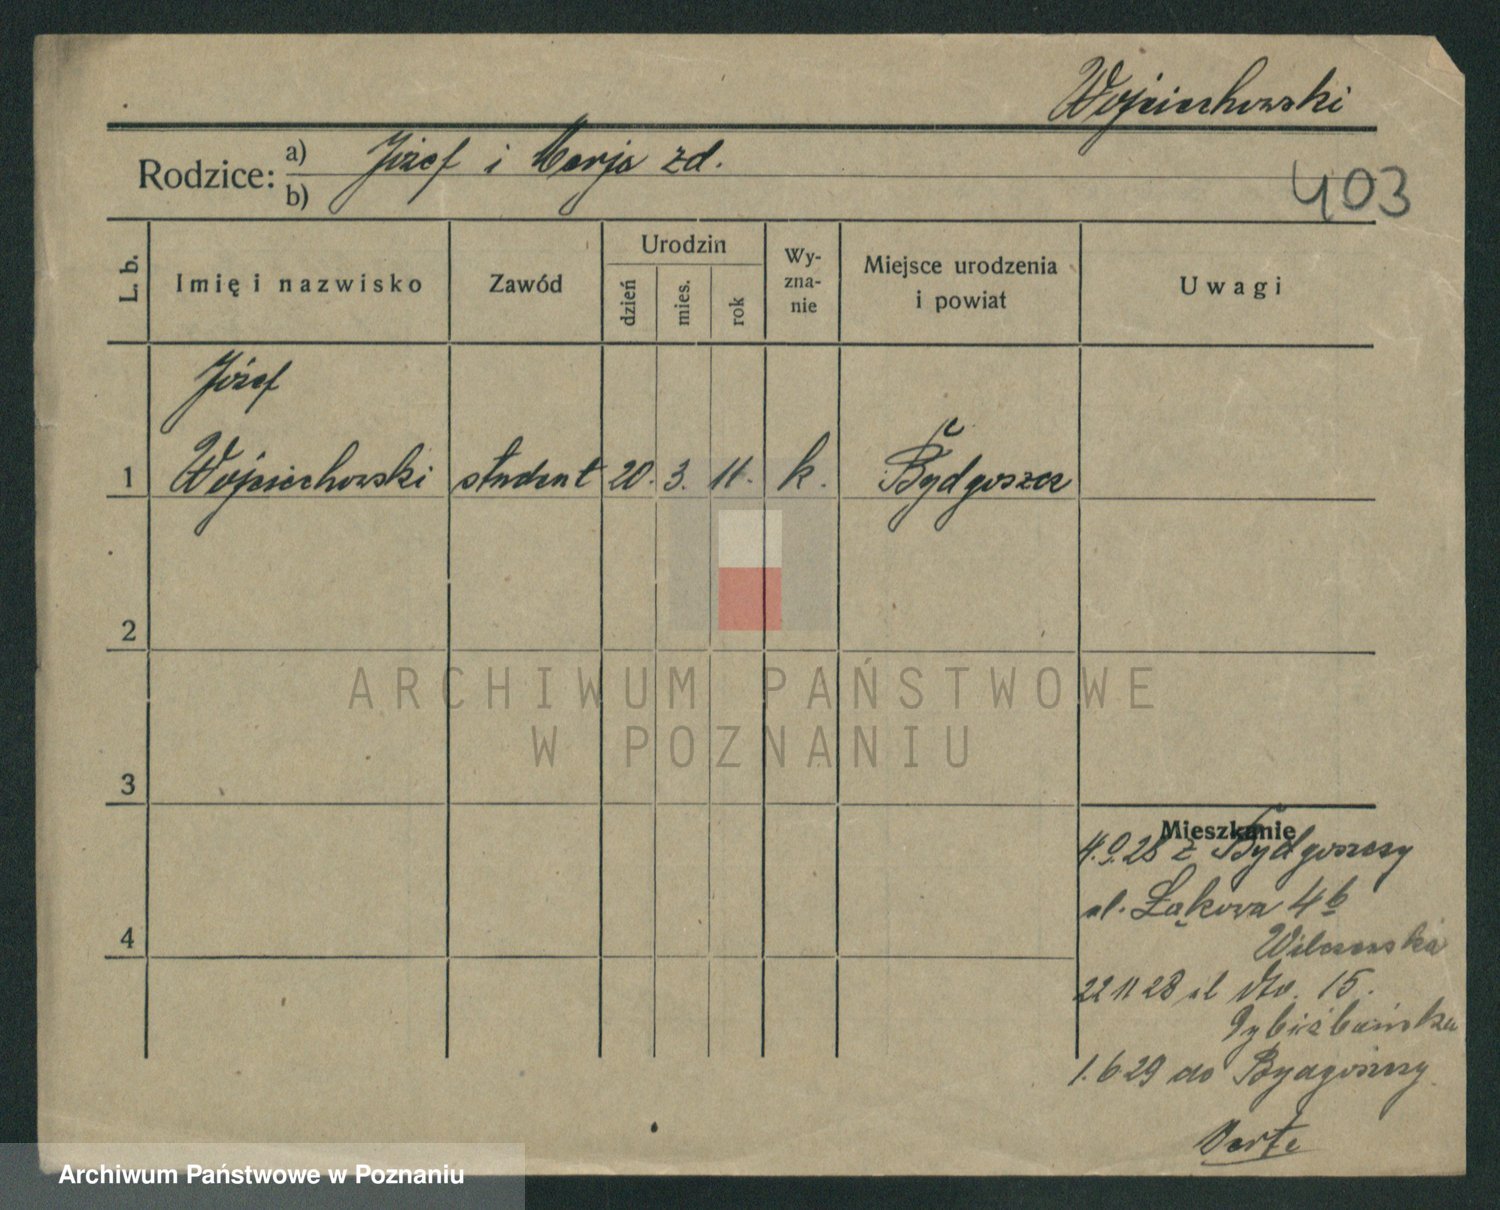 Wojciechowski
Rodzice: a) Józef i Marja zd.
b)
403
L. b.
Imię i nazwisko
Zawód
Urodzin
dzień
mies.
rok
Wy-
zna-
nie
Miejsce urodzenia
i powiat
Uwagi
Józef
1 Wojciechowski student 20. 3. 11. k. Bydgoszcz
2
3
4
Mieszkanie
4.9.28 z Bydgoszczy
ul. Łąkowa 4b
Wilczewska
22 11 28 ul dto. 15.
1.6 29 do Bydgoszczy
Verte
ARCHIWUM PAŃSTWOWE
W POZNANIU
Archiwum Państwowe w Poznaniu